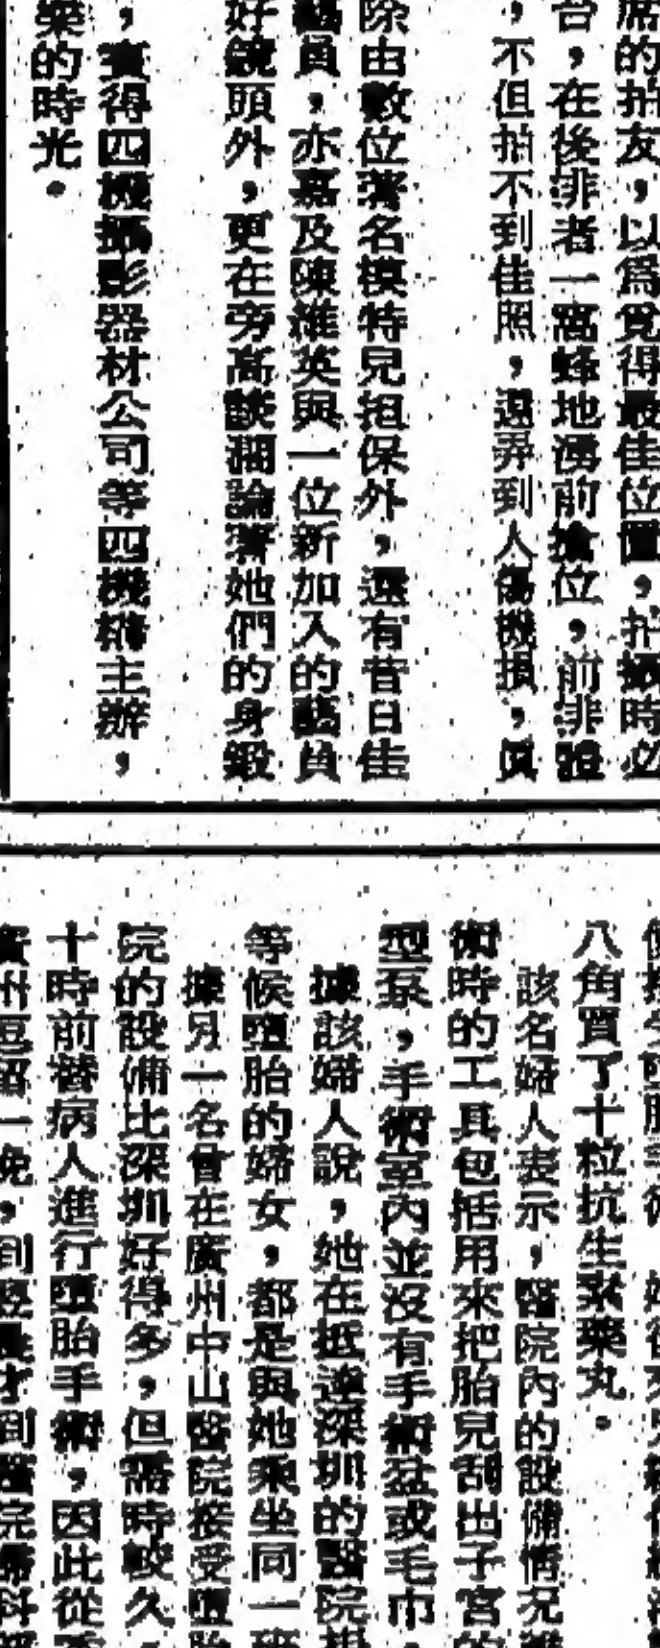 席的拍友，以爲覓得最佳位置，拍攝時必
台，在後排者一窩蜂地湧前搶位，前排
，不但拍不到佳照，還弄到人傷機損，眞
除由數位著名模特兒担保外，還有昔日佳
藝員，亦嘉及陳維英與一位新加入的藝員
好鏡頭外，更在旁高談濶論著她們的身鍛
，實得四機攝影器材公司等四機構主辦，
樂的時光。
八角買了十粒抗生素藥丸。
該名婦人表示，醫院內的設備情況
術時的工具包括用來把胎兒刮出子宮的
型泵，手術室內並沒有手術盆或毛巾。
據該婦人說，她在抵達深圳的醫院掛
等候墮胎的婦女，都是與她乘坐同一
據另一名曾在廣州中山醫院接受墮胎
院的設備比深圳好得多，但需時較久，
十時前替病人進行墮胎手術，因此從
廣州逗留一晚，到